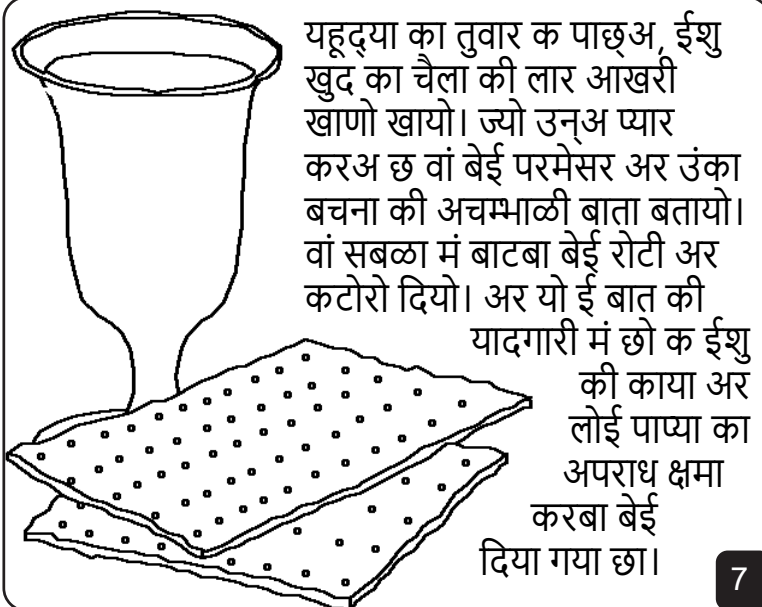 यहूद्‌या का तुवार क पाछ्अ, ईशु
खुद का चैला की लार आखरी
खाणो खायो। ज्यो उन्अ प्यार
करअ छ वां बेई परमेसर अर उंका
बचना की अचम्भाळी बाता बतायो।
वां सबळा मं बाटबा बेई रोटी अर
कटोरो दियो। अर यो ई बात की
यादगारी मं छो क ईशु
की काया अर
लोई पाप्या का
अपराध क्षमा
करबा बेई
दिया गया छा।
7